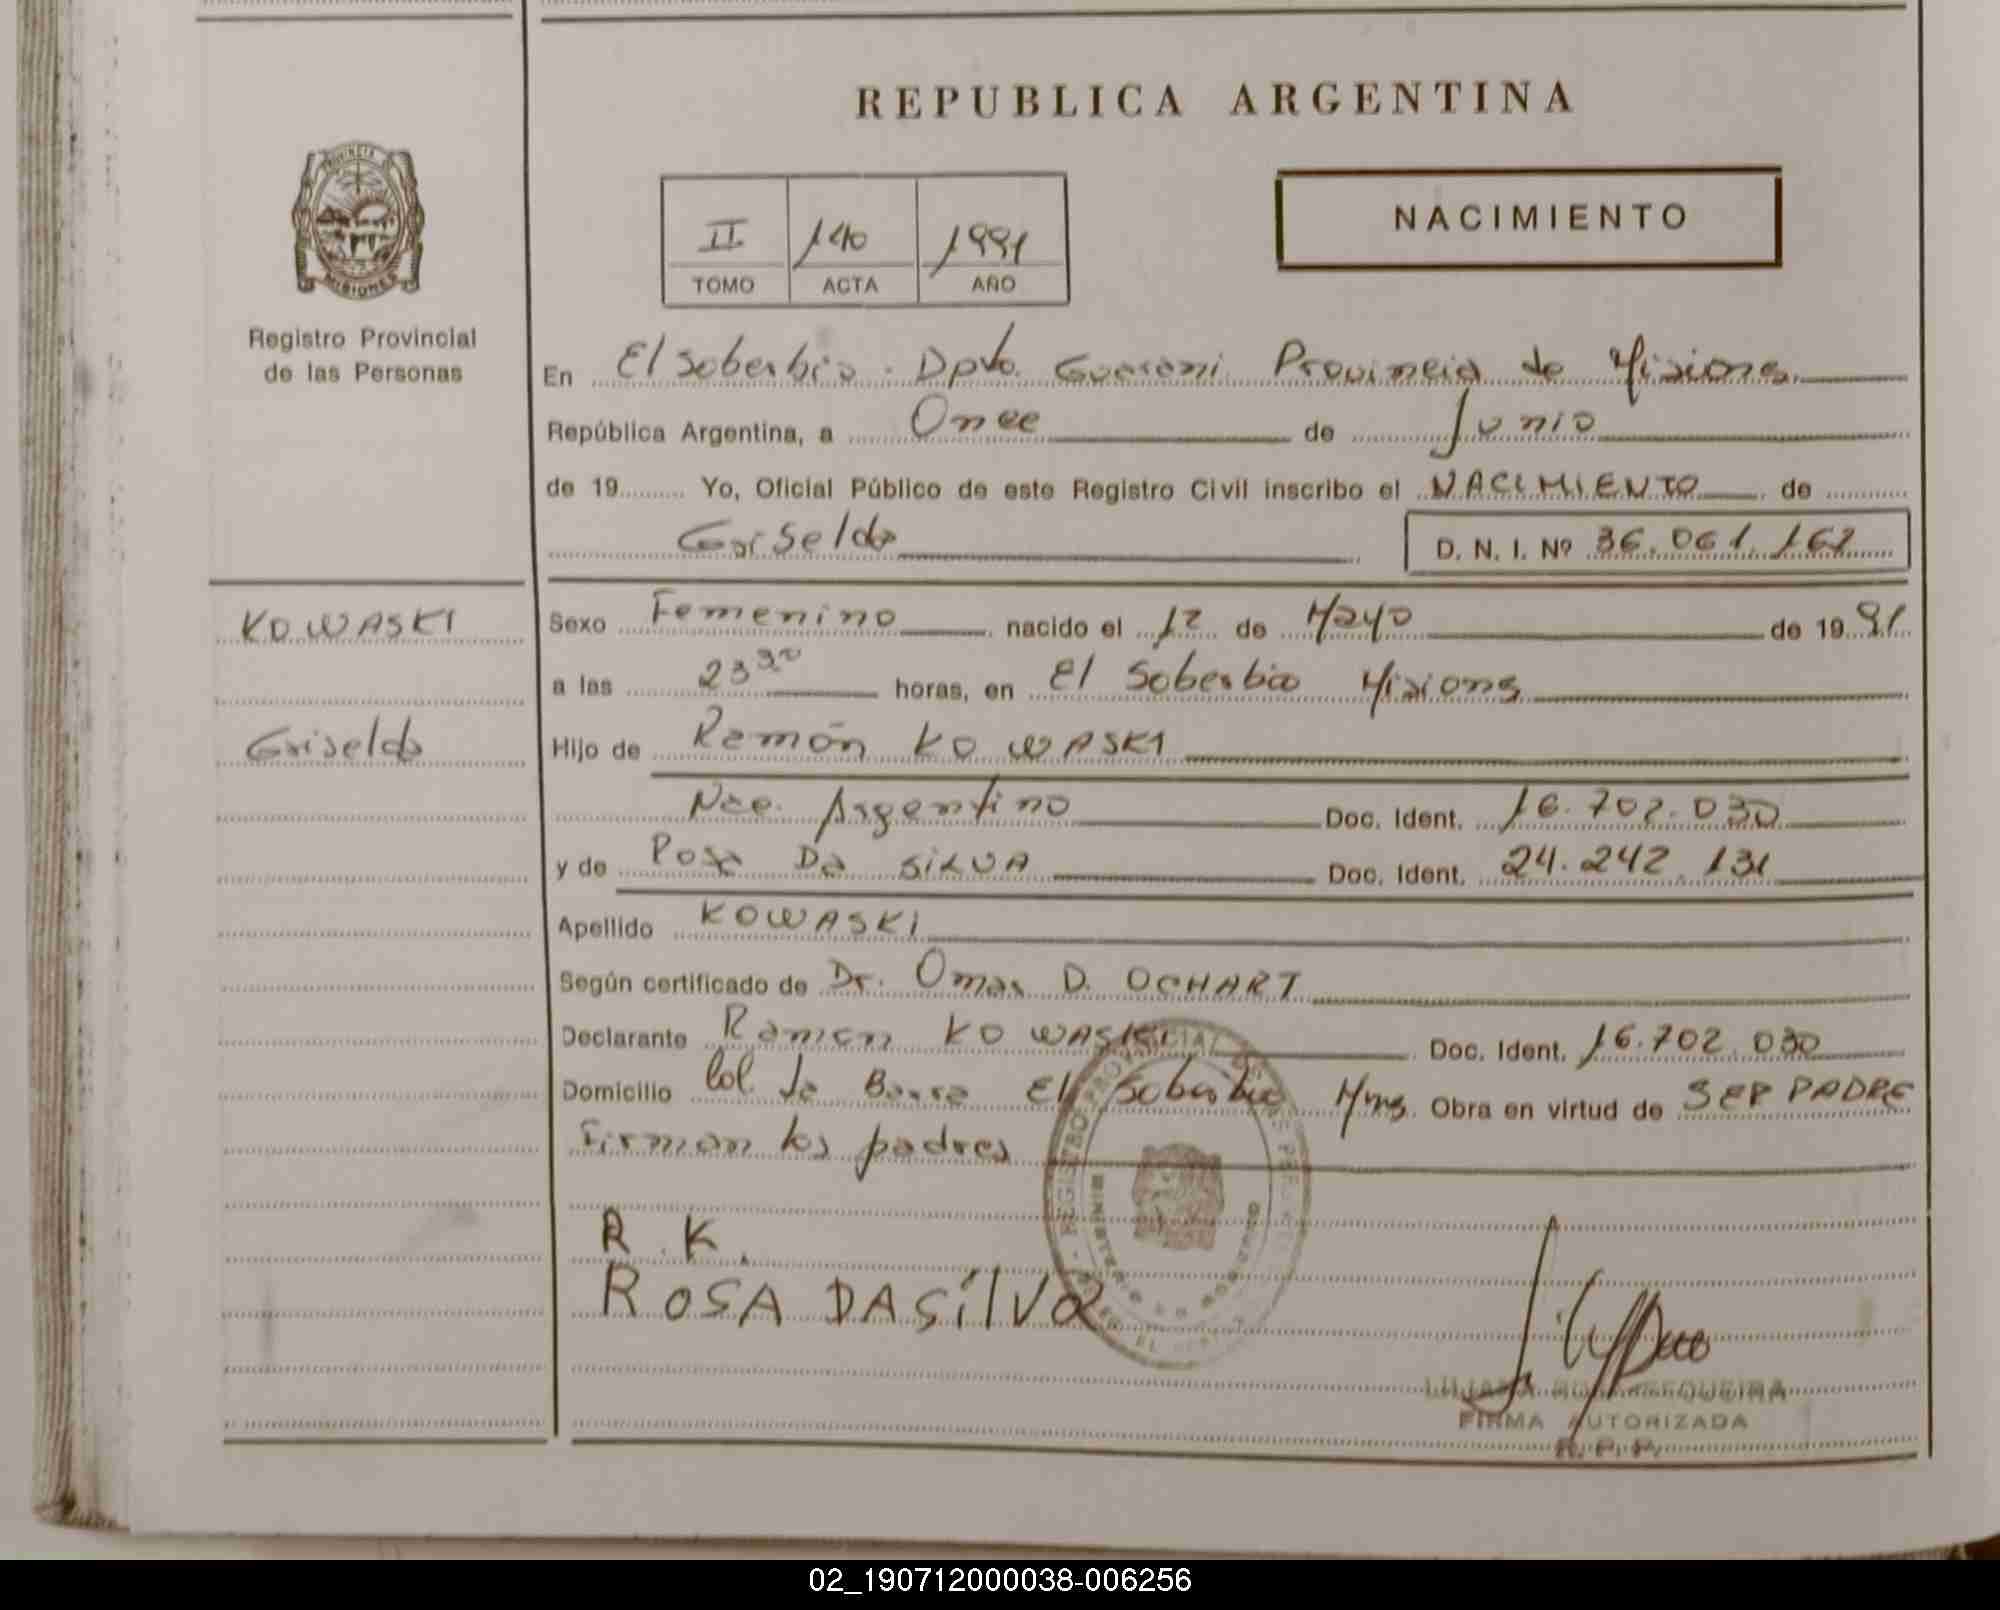 REPUBLICA ARGENTINA
PROVINCIA
MISIONES
Registro Provincial
de las Personas
NACIMIENTO
II 140 1991
TOMO ACTA AÑO
En El Soberbio. Dpto. Guarani Provincia de Misiones
República Argentina, a Once de Junio
de 19 Yo, Oficial Público de este Registro Civil inscribo el NACIMIENTO de
Griselda D. N. I. Nº 36.061.162
KOWASKI
Griselda
Sexo Femenino nacido el 12 de Mayo de 1991
a las 23 30 horas, en El Soberbio Misiones
Hijo de Ramón KOWASKI
Nac. Argentino Doc. Ident. 16.702.030
y de Rosa Da SILVA Doc. Ident. 24.242.131
Apellido KOWASKI
Según certificado de Dr. Omar D. OCHART
Declarante Ramon KOWASKI Doc. Ident. 16.702.030
Domicilio Col. La Barra El Soberbio Mnes. Obra en virtud de SER PADRE
Firman los padres
R. K.
ROSA DASILVA
FIRMA AUTORIZADA
R. P. P.
02_190712000038-006256